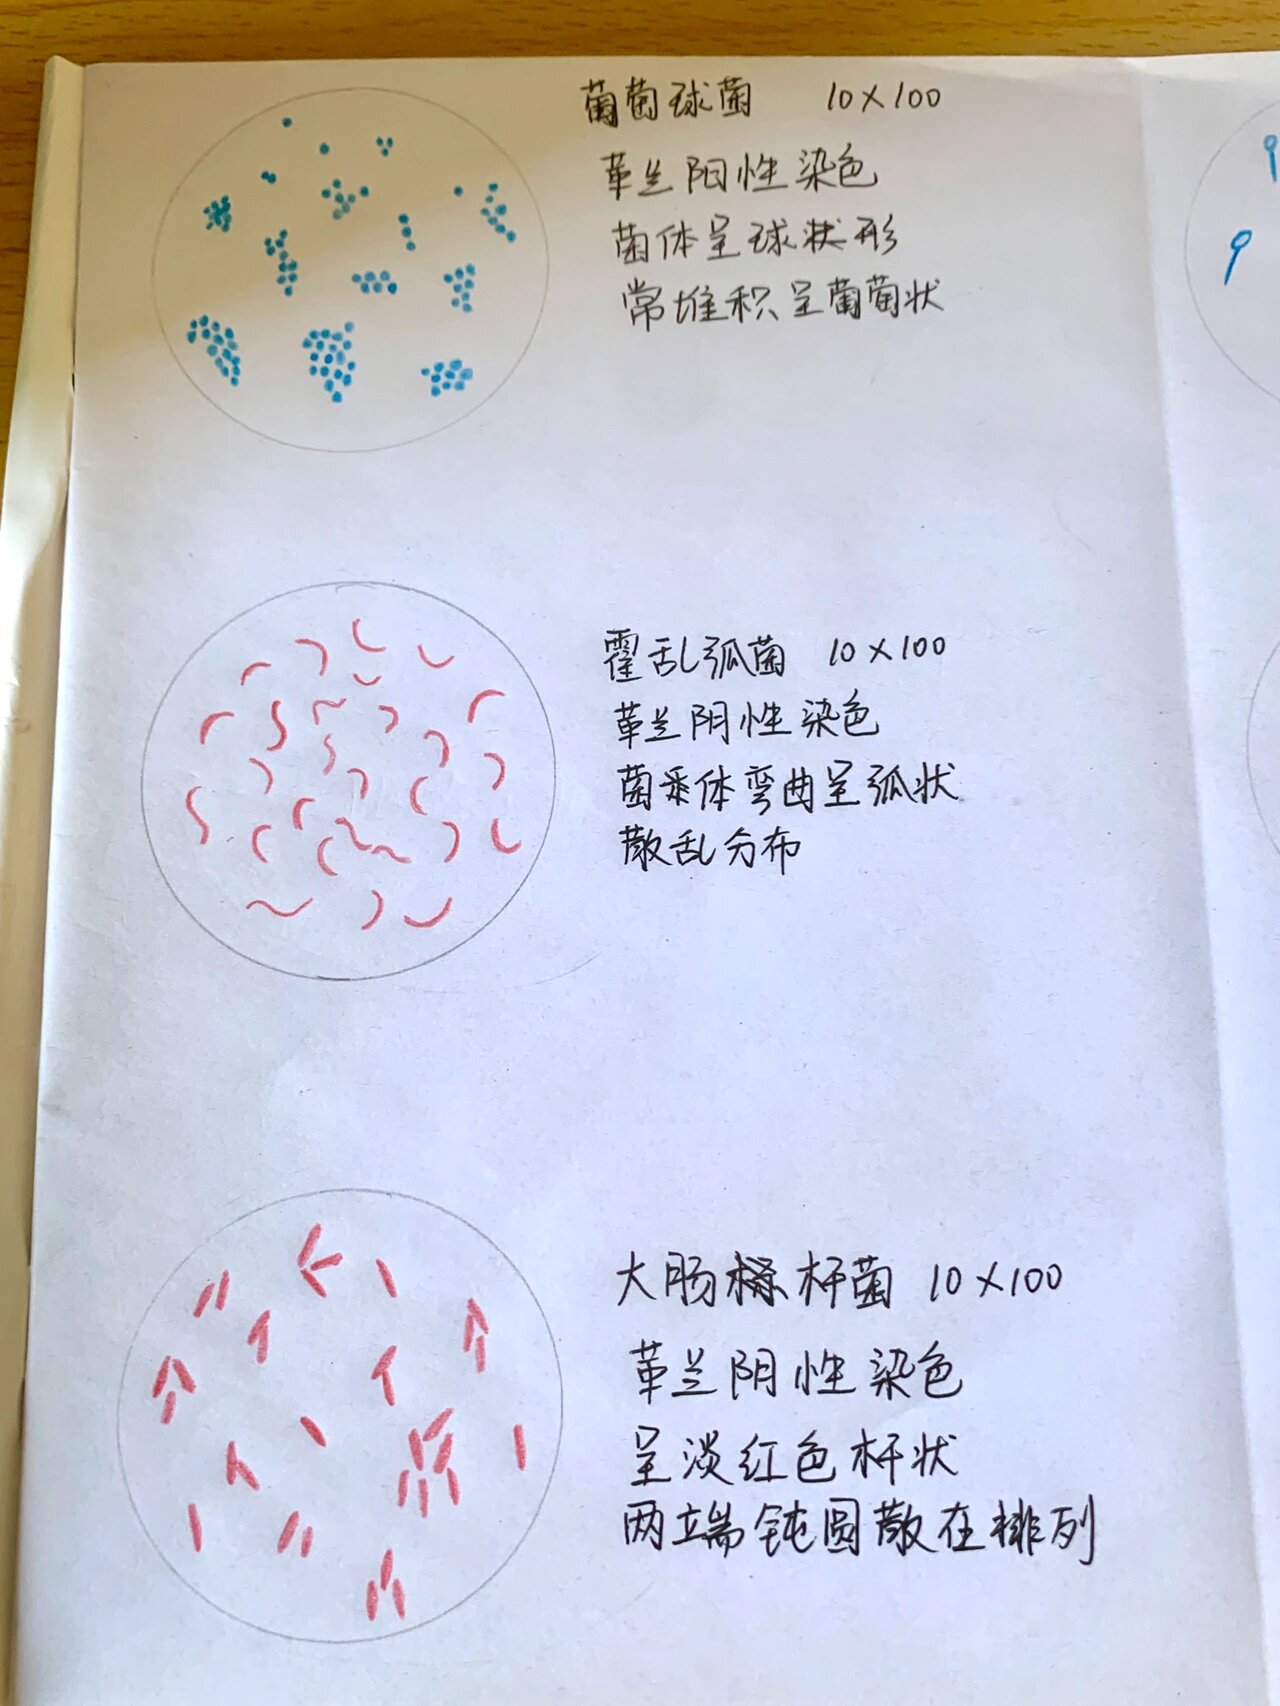 葡萄球菌 10×100
革兰阳性染色
菌体呈球状形
常堆积呈葡萄状
霍乱弧菌 10×100
革兰阴性染色
菌体弯曲呈弧状
散乱分布
大肠杆菌 10×100
革兰阴性染色
呈淡红色杆状
两端钝圆散在排列